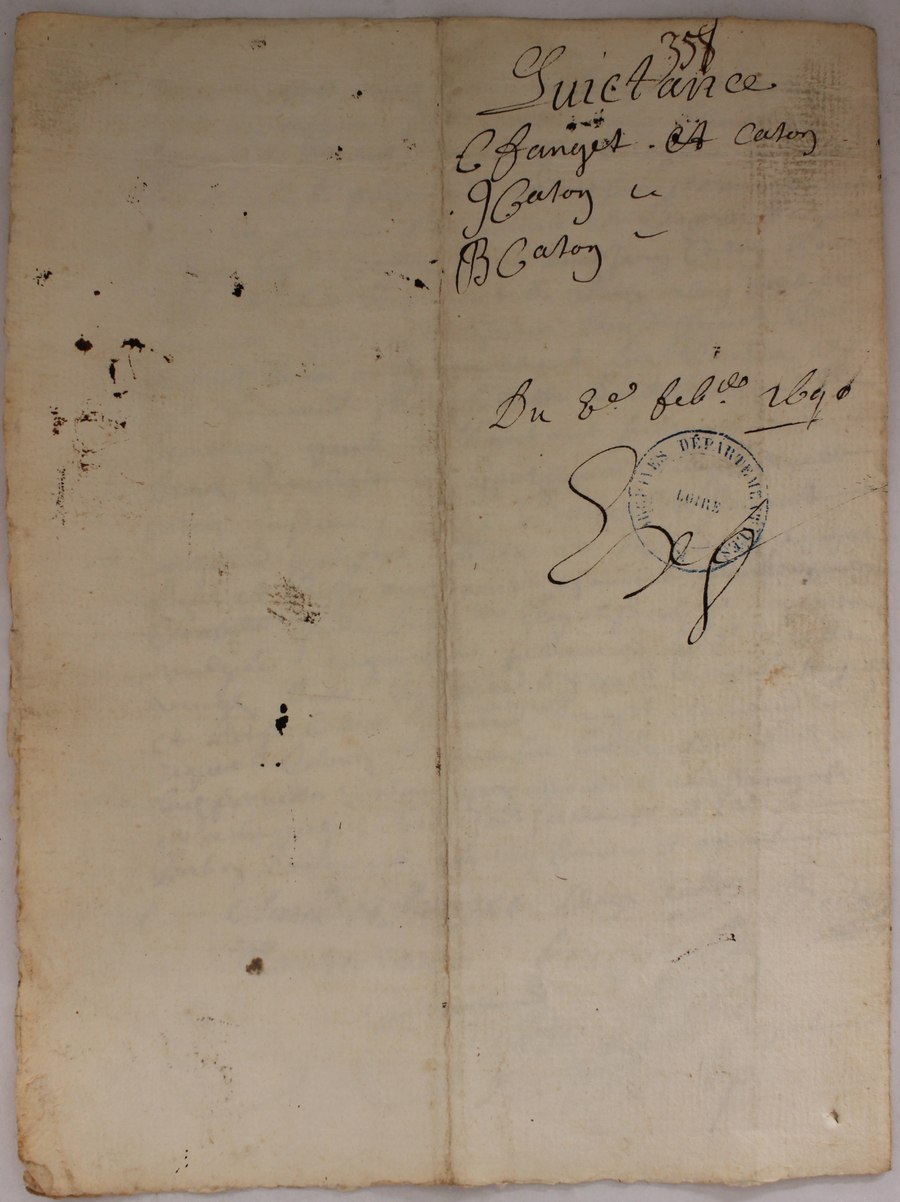 358
Quictance
C fanget . et caton
J Caton
B Caton
Du 8e feb
ARCHIVES DÉPARTEMENTALES
LOIRE